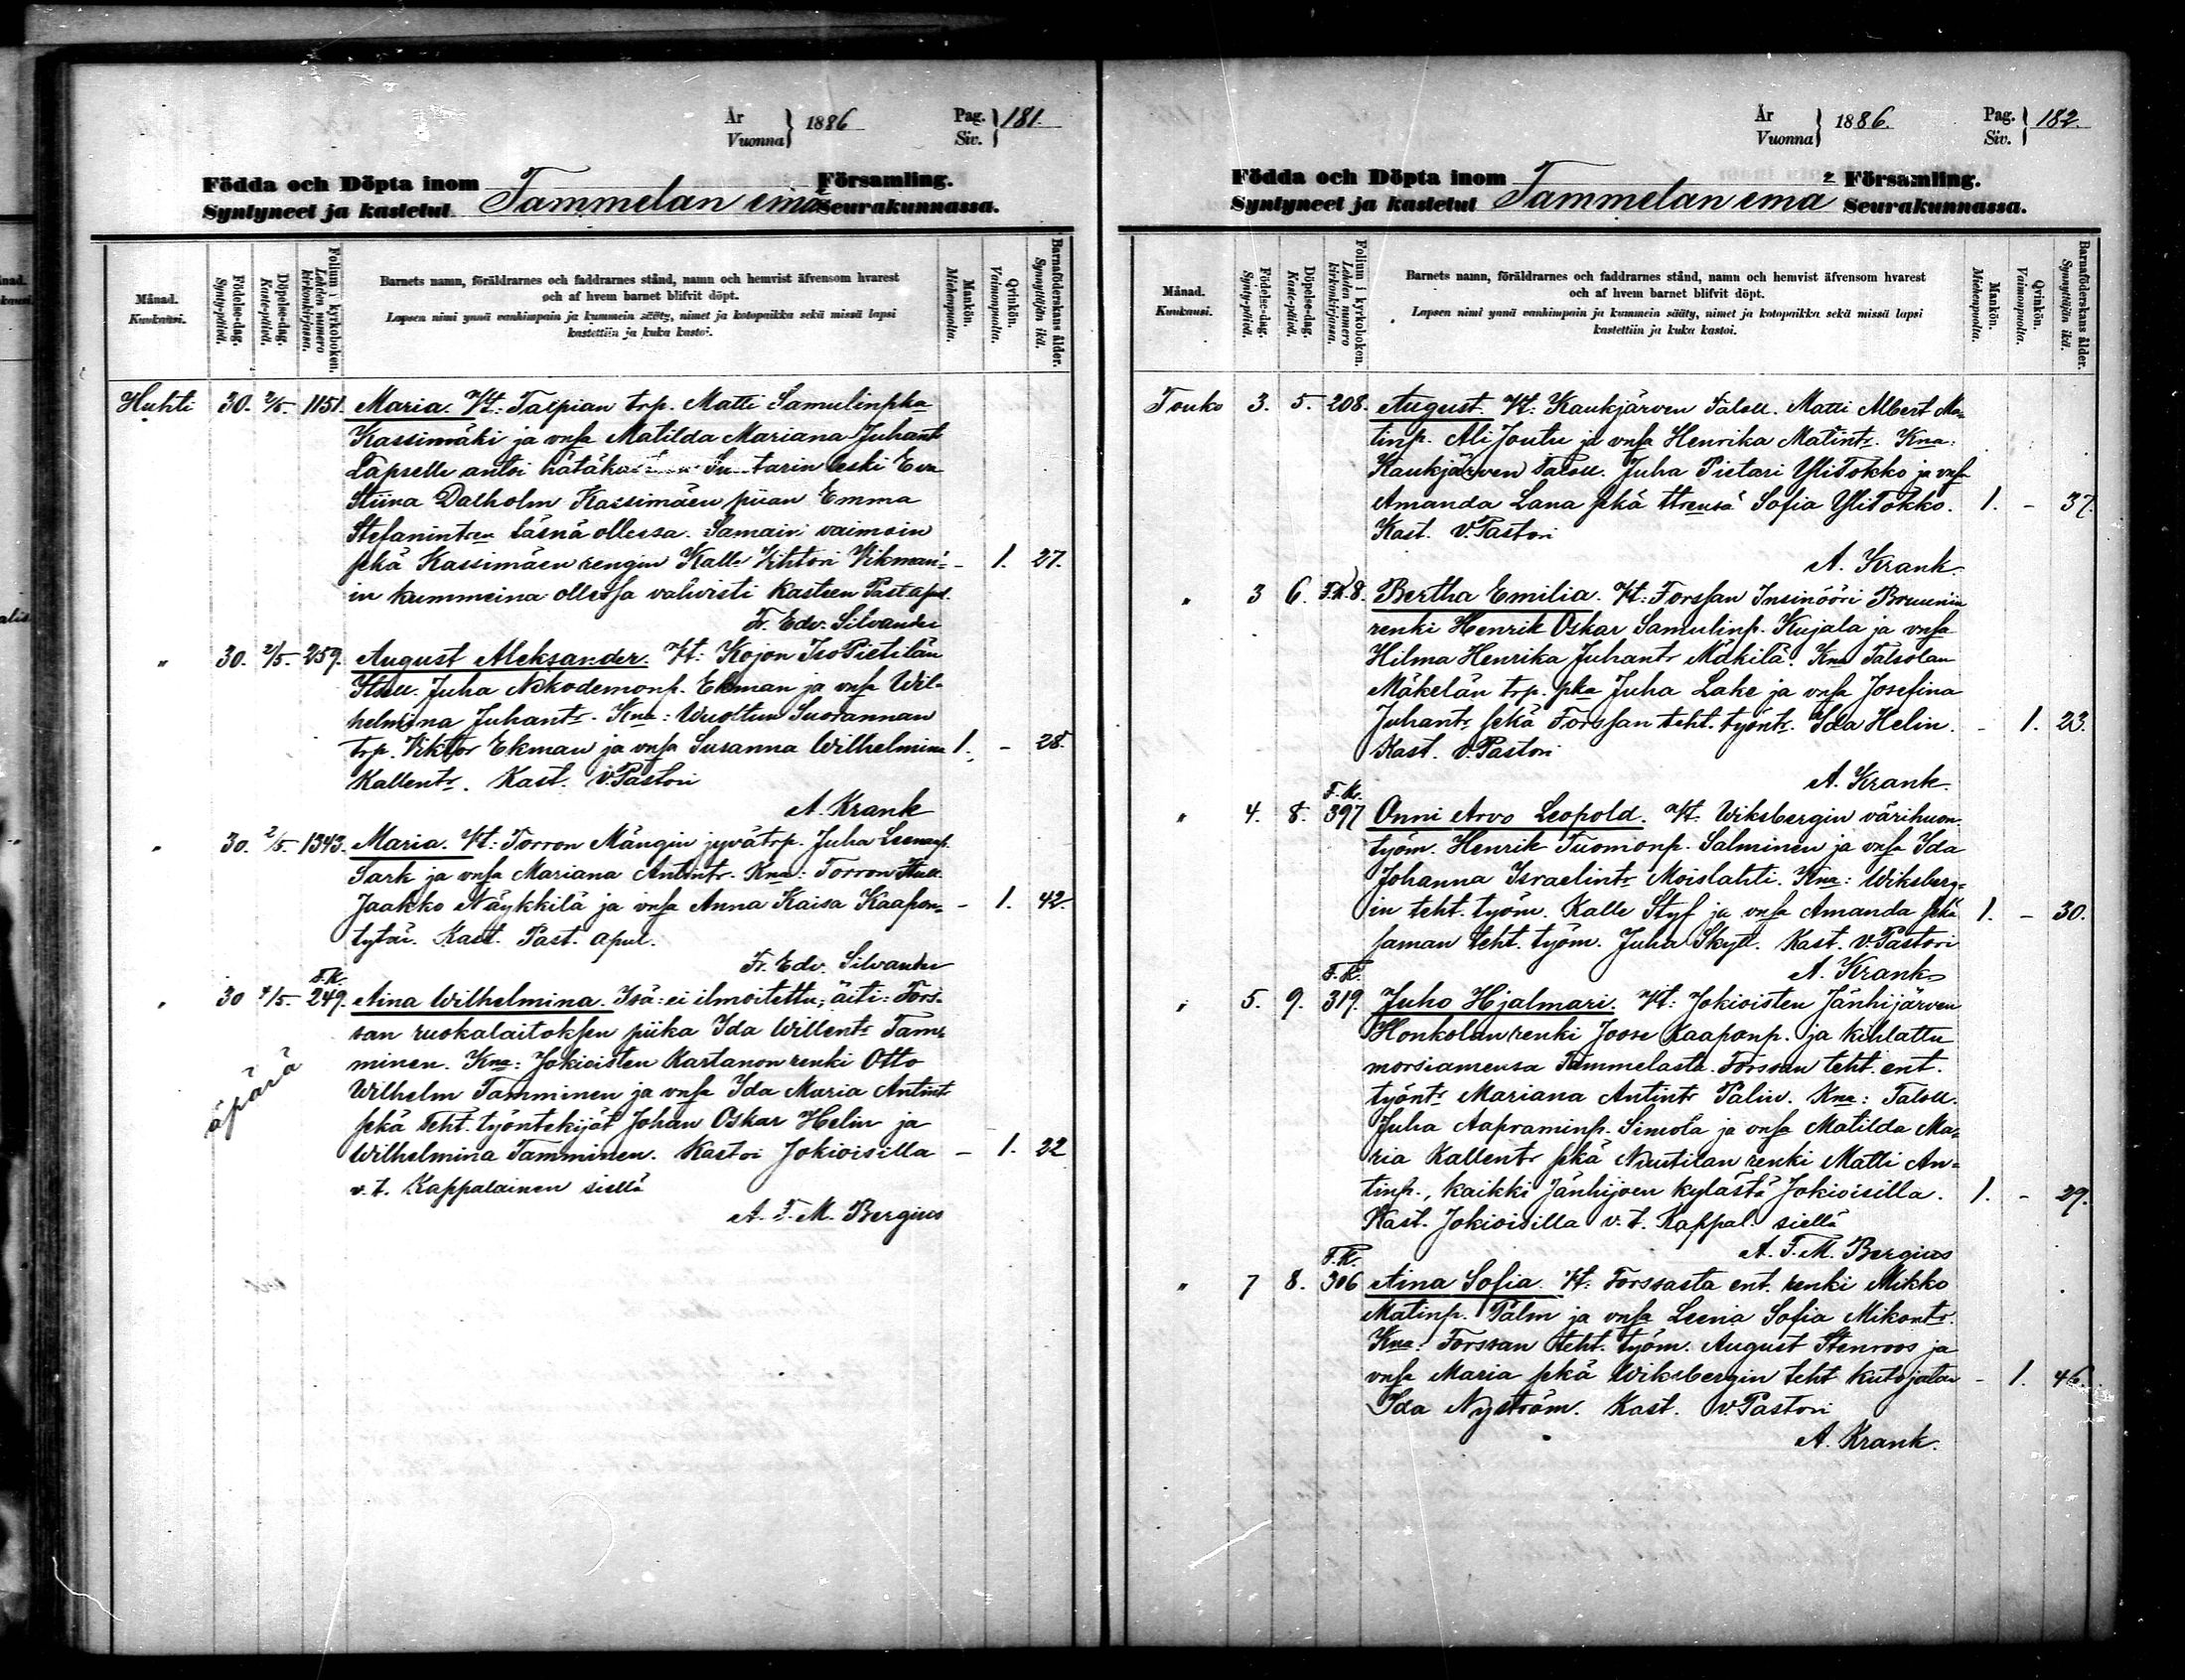 År
Vuonna } 1886
Pag.
Siv. } 181.
Födda och Döpta inom Församling.
Syntyneet ja kastetut Tammelan emä Seurakunnassa.
Månad.
Kuukausi.
Födelse-dag.
Synty-päivä.
Döpelse-dag.
Kaste-päivä.
Folium i kyrkoboken.
Lehden numero kirkonkirjassa.
Barnets namn, föräldrarnes och faddrarnes stånd, namn och hemvist äfvensom hvarest
och af hvem barnet blifvit döpt.
Lapsen nimi ynnä vanhimpain ja kummein sääty, nimet ja kotopaikka sekä missä lapsi
kastettiin ja kuka kastoi.
Mankön.
Miehenpuolta.
Qvinkön.
Vaimonpuolta.
Barnaföderskans ålder.
Synnyttäjän ikä.
Huhti 30. 2/5. 1151. Maria. Vt: Talpian trp. Matti Samulinpka
Kassimäki ja vnsa Matilda Mariana Juhant
Lapselle antoi hätäka Su tarin leski Eva
Stiina Dalholm Kassimäen piian Emma
Stefanintren läsnä ollessa. Samain vaimoin
sekä Kassimäen rengin Kalle Vihtori Vikman'= - 1. 27.
in kummeina ollessa vahvisti kasteen Past apul.
Fr. Edv. Silvander
" 30. 2/5. 259. August Aleksander. Vt: Kojon IsoPietilän
Itsell. Juha Nikodemonp. Ekman ja vnsa Wil-
helmina Juhantr. Kna: Wuoltun Suorannan
trp. Viktor Ekman ja vnsa Susanna Wilhelmina 1. - 28.
Kallentr. Kast. v. Pastori
A. Krank
" 30. 2/5. 1343. Maria. Vt: Torron Mängin jyvätrp. Juha Leenanp.
Sark ja vnsa Mariana Antintr. Kna: Torron Itsell.
Jaakko Näykkilä ja vnsa Anna Kaisa Kaapon= - 1. 42.
tytär. Kast. Past. apul.
Fr. Edv. Silvander
F.K.
" 30 4/5. 249. Aina Wilhelmina. Isä: ei ilmoitettu; äiti: Fors-
san ruokalaitoksen piika Ida Willentr Tam-
minen. Kna: Jokioisten Kartanon renki Otto
äpärä
Wilhelm Tamminen ja vnsa Ida Maria Antint
sekä Teht. työntekijät Johan Oskar Helin ja
Wilhelmina Tamminen. Kastoi Jokioisilla - 1. 22
v. t. Kappalainen siellä
A. F. M. Bergius
År
Vuonna } 1886.
Pag.
Siv. } 182.
Födda och Döpta inom Församling.
Syntyneet ja kastetut Tammelan emä Seurakunnassa.
Månad.
Kuukausi.
Födelse-dag.
Synty-päivä.
Döpelse-dag.
Kaste-päivä.
Folium i kyrkoboken.
Lehden numero kirkonkirjassa.
Barnets namn, föräldrarnes och faddrarnes stånd, namn och hemvist äfvensom hvarest
och af hvem barnet blifvit döpt.
Lapsen nimi ynnä vanhimpain ja kummein sääty, nimet ja kotopaikka sekä missä lapsi
kastettiin ja kuka kastoi.
Mankön.
Miehenpuolta.
Qvinkön.
Vaimonpuolta.
Barnaföderskans ålder.
Synnyttäjän ikä.
Touko 3. 5. 208. August. Vt: Kaukjärven Taloll. Matti Albert Ma-
tinp. AliJoutu ja vnsa Henrika Matintr. Kna:
Kaukjärven Taloll. Juha Pietari YliTokko ja vnsa
Amanda Lana sekä ttrensä Sofia YliTokko. 1. - 37.
Kast. v. Pastori
A. Krank.
" 3 6. F.K.8. Bertha Emilia. Vt: Forssan Insinööri Bruunin
renki Henrik Oskar Samulinp. Kujala ja vnsa
Hilma Henrika Juhantr Mäkilä. Kna Talsolan
Mäkelän trp. pka Juha Lake ja vnsa Josefina
Juhantr sekä Forssan teht. työntr. Ida Helin. - 1. 23.
Kast. v. Pastori
A. Krank.
F. K.
" 4. 8. 397 Onni Arvo Leopold. Vt. Wiksbergin värihuon.
työm. Henrik Tuomonp. Salminen ja vnsa Ida
Johanna Israelintr Moislahti. Kna: Wiksberg-
in teht. työm. Kalle Styf ja vnsa Amanda sekä 1. - 30.
saman teht. työm. Juha Skytt. Kast. v. Pastori
A. Krank
F. K.
" 5. 9. 319. Juho Hjalmari. Vt: Jokioisten Jänhijärven
Honkolan renki Joose Kaaponp. ja kihlattu
morsiamensa Tammelasta. Forssan teht. ent.
työntr Mariana Antintr Palin. Kna: Taloll.
Juha Aapraminp. Simola ja vnsa Matilda Ma-
ria Kallentr sekä Nuutilan renki Matti An-
tinp., kaikki Jänhijoen kylästä Jokioisilla. 1. - 29.
Kast. Jokioisilla v. t. Kappal. siellä
A. F. M. Bergius
F. K.
" 7 8. 306 Aina Sofia. Vt: Forssasta ent. renki Mikko
Matinp. Palm ja vnsa Leena Sofia Mikontr.
Kna: Forssan teht. työm. August Stenroos ja
vnsa Maria sekä Wiksbergin teht kutojatar - 1. 46.
Ida Nyström. Kast. v. Pastori
A. Krank.